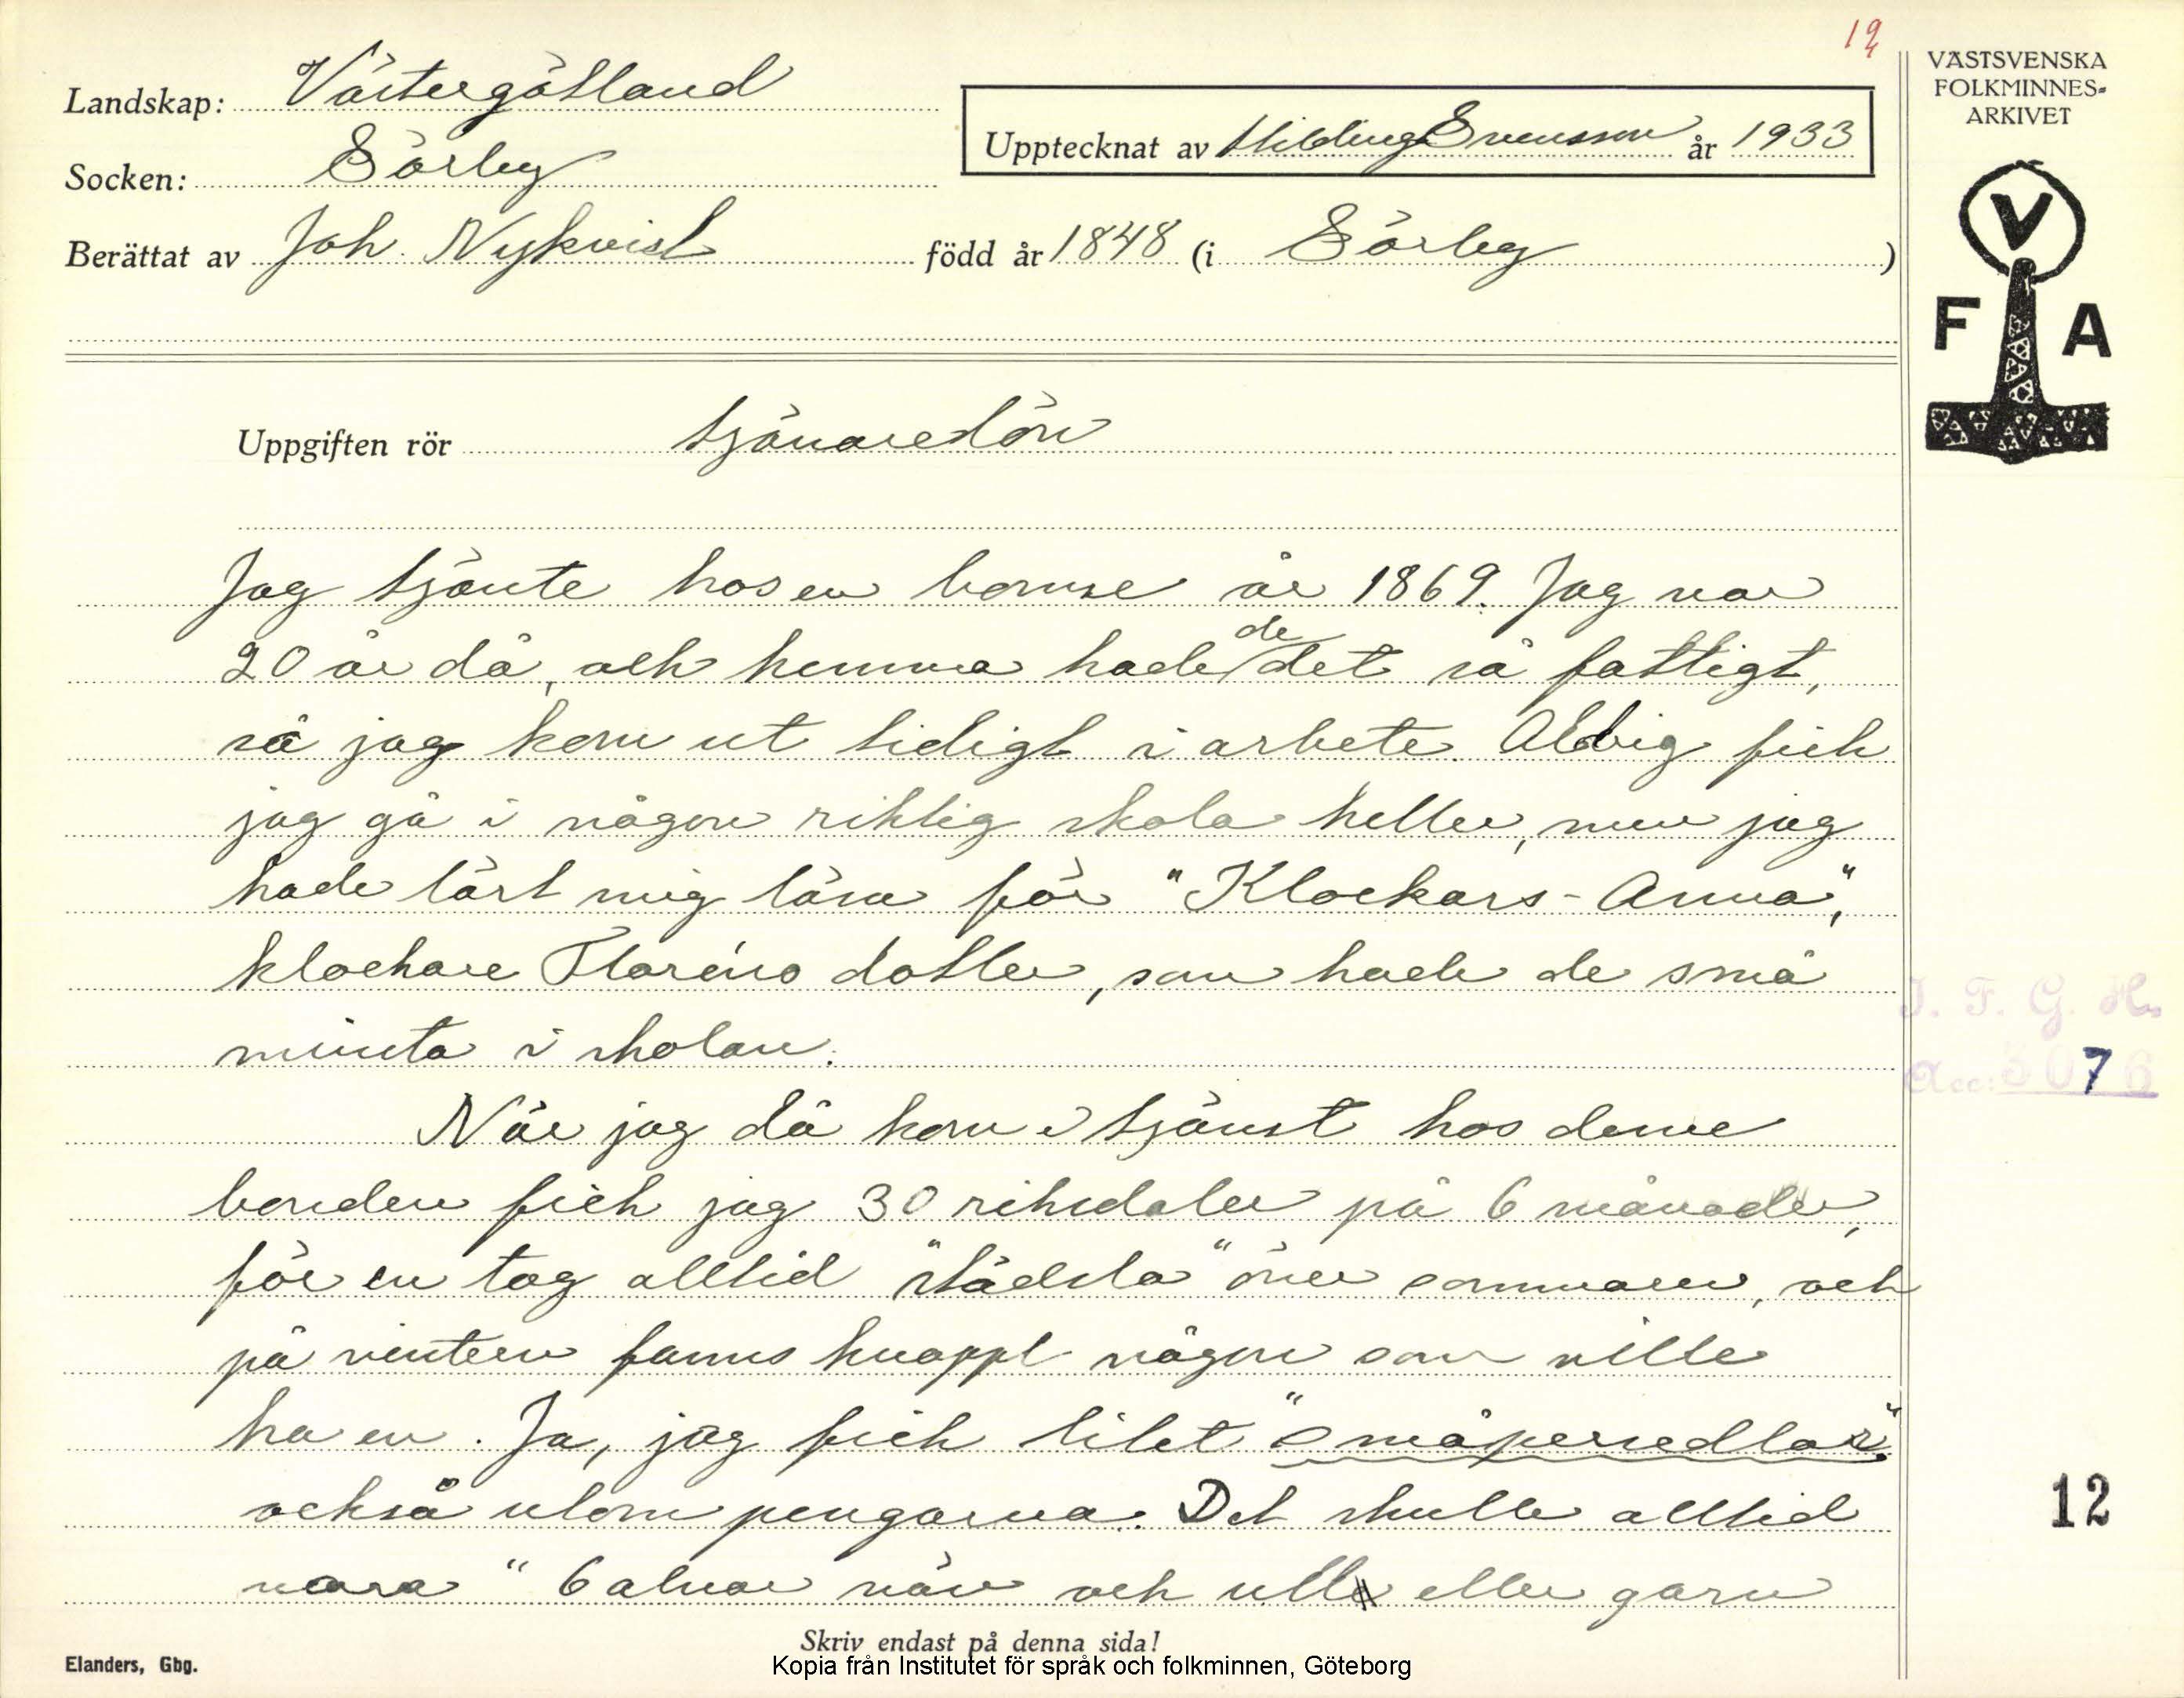 12
VÄSTSVENSKA
FOLKMINNES-
ARKIVET
Landskap: Västergötland
Upptecknat av Hilding Svensson år 1933
Socken: Sörby
Berättat av Joh. Nykvist född år 1848 (i Sörby)
V
F A
Uppgiften rör tjänarelön
Jag tjänte hos en bonne år 1869. Jag var
20 år då, och hemma hade de det så fattigt,
så jag kom ut tidigt i arbete. Aldrig fick
jag gå i någon riktig skola heller, men jag
hade lärt mig läsa för "Klockars-Anna",
klockare Floréns dotter, som hade de små
minsta i skolan.
När jag då kom i tjänst hos denne
bonden fick jag 30 riksdaler på 6 månader,
för en tog alltid "städsla" över sommaren, och
på vintern fanns knappt någon som ville
ha en. Ja, jag fick litet "småpersedlar"
också utom pengarna. Det skulle alltid
vara "6 alnar väv och ull eller garn
J. F. G. H.
Acc: 3076
12
Skriv endast på denna sida!
Elanders, Gbg.
Kopia från Institutet för språk och folkminnen, Göteborg